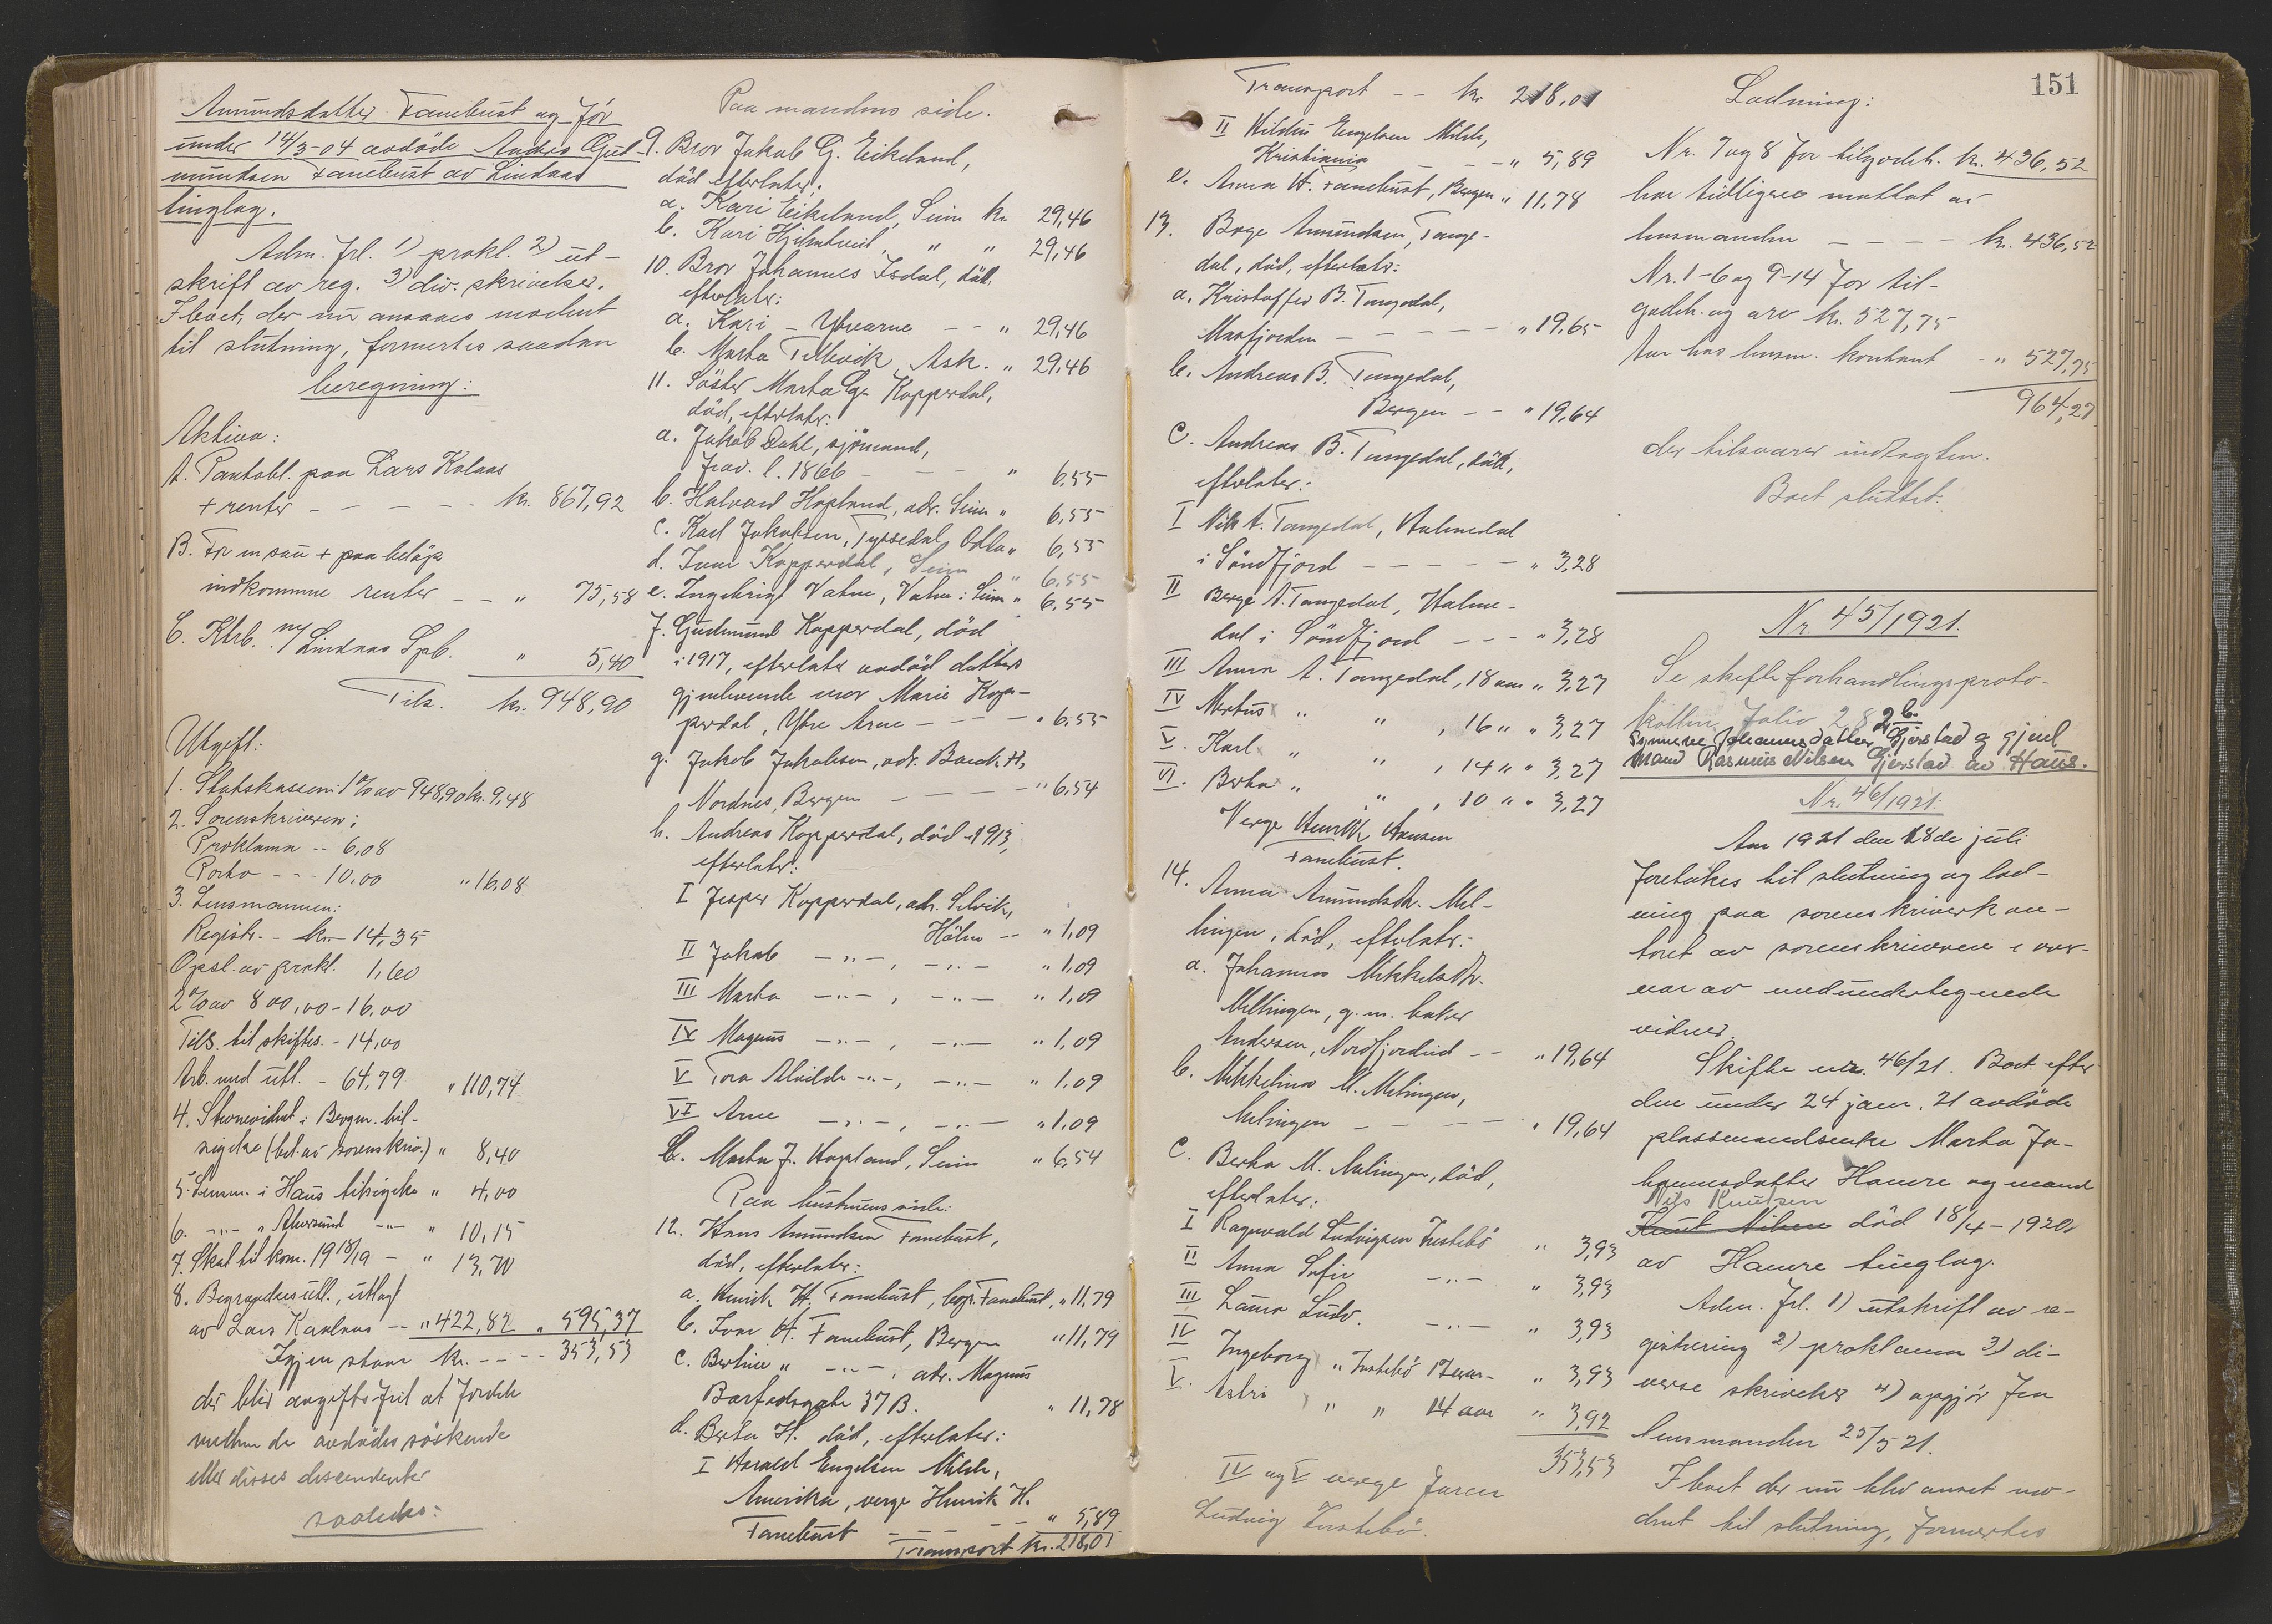 Amundsdatter Fanebust og før
under 14/3-04 avdøde Anders Gud-
mundsen Fanebust av Lindaas
tinglag.
Adm. frl. 1) prokl. 2) ut-
skrift av reg. 3) div. skrivelser.
I boet, der nu ansaaes modent
til slutning, formertes saadan
beregning:
Aktiva:
A. Pantobl. paa Lars Kolaas
+ renter - - - - - kr. 867,92
B. For en sau + paa beløp
indkomne renter - - " 75,58
C. Ktrb. m/ Lindaas Spb. " 5,40
Tils. kr. 948,90
Utgift:
1. Statskassen: 1% av 948,90 kr. 9,48
2. Sorenskriveren:
Proklama -- 6,08
Porto - - - 10,00 " 16,08
3. Lensmannen:
Registr. - kr 14,35
Opsl. av prokl. 1,60
2% av 800,00 - 16,00
Tils. til skiftes. - 14,00
Arb. med utl. - 64,79 " 110,74
4. Stevnevidnet i Bergen. til-
sigelse (bet. av sorenskriv.) " 8,40
5. Lensm. i Haus tilsigelse " 4,00
6. -"- " Alversund -"- " 10,15
7. Skat til kom. 1918/19 - " 13,70
8. Begravelsesutl., utlagt
av Lars Kaalaas -- " 422,82 " 595,37
Igjen staar kr. - - - - 353,53
der blir avgiftsfrit at fordele
mellem de avdødes søskende
eller disses descendenter
saaledes:
Paa mandens side.
9. Bror Jakob G. Eikeland,
død efterlater:
a. Kari Eikeland, Seim kr. 29,46
b. Kari Hjelmtveit, " " 29,46
10. Bror Johannes Isdal, død,
efterlater:
a. Kari - Ytrearne - - " 29,46
b. Marta Tellevik, Ask. " 29,46
11. Søster Marta G. Kopperdal,
død, efterlater:
a. Jakob Dahl, sjømand,
frav. l. 1866 - - - " 6,55
b. Halvard Hopland, adr. Seim " 6,55
c. Karl Jakobsen, Tyssedal, Odda " 6,55
d. Ivar Kopperdal, Seim " 6,55
e. Ingebrigt Vatne, Vatne i Seim " 6,55
f. Gudmund Kopperdal, død
i 1917, efterlater avdød datters
gjenlevende mor Marie Kop-
perdal, Ytre Arne - - - - " 6,55
g. Jakob Jakobsen, adr. Baack H,
Nordnes, Bergen - - - - - " 6,54
h. Andreas Kopperdal, død 1913,
efterlater:
I Jesper Kopperdal, adr. Selvik,
Holm -- " 1,09
II Jakob -"-, -"- " 1,09
III Marta -"-, -"- " 1,09
IV Magnus -"-, -"- " 1,09
V Tora Alvilde -"-, -"- " 1,09
VI Arne -"-, -"- " 1,09
C. Marta J. Hopland, Seim " 6,54
Paa hustruens side:
12. Hans Amundsen Fanebust,
død, efterlater:
a. Henrik H. Fanebust, bop. Fanebust, " 11,79
b. Ivar H. Fanebust, Bergen " 11,79
c. Bertine " -"-, adr. Magnus
Barfodsgate 37 B. " 11,78
d. Berta H. død, efterlater:
I Harald Engelsen Milde,
Amerika, verge Henrik H.
Fanebust - - - - - " 5,89
Transport kr. 218,01
151
Transport -- kr. 218,01
II Hildur Engelsen Milde,
Kristiania - - - " 5,89
e. Anna H. Fanebust, Bergen " 11,78
13. Børge Amundsen, Tange-
dal, død, efterlater:
a. Kristoffer B. Tangedal,
Masfjorden - - - - - " 19,65
b. Andreas B. Tangedal,
Bergen - - " 19,64
c. Andreas B. Tangedal, død,
efterlater:
I Nils A. Tangedal, Holmedal
i Søndfjord - - - - - " 3,28
II Børge A. Tangedal, Holme-
dal i Søndfjord - - - " 3,28
III Anna A. Tangedal, 18 aar " 3,27
IV Mertus " " , 16 " " 3,27
V. Karl " " , 14 " " 3,27
VI. Berta " " , 10 " " 3,27
Verge Henrik Hansen
Fanebust.
14. Anna Amundsdtr. Mel-
lingen, død, efterlater:
a. Johanna Mikkelsdtr.
Mellingen, g. m. baker
Andersen, Nordfjordeid -- " 19,64
b. Mikkeline M. Melingen,
Melingen - - - - - " 19,64
c. Berta M. Melingen, død,
efterlater:
I Ragnvald Ludvigsen Instebø " 3,93
II Anna Sofie -"- " 3,93
III Laura Ludv. -"- " 3,93
IV Ingeborg " Instebø 17 aar - " 3,93
V. Astri " " 14 aar " 3,92
353,53
IV og V verge faren
Ludvig Instebø.
Lodning:
Nr. 7 og 8 for tilgodeh. kr. 436,52
har tidligere mottat av
lensmanden - - - - kr. 436,52
Nr. 1-6 og 9-14 for til-
godeh. og arv kr. 527,75
tar hos lensm. kontant - " 527,75
964,27
der tilsvarer indtægten.
Boet sluttet.
Nr. 45/1921.
Se skifteforhandlingsproto-
kollen folio 282 b.
Synneve Johannesdatter Gjerstad og gjenl
mand Rasmus Nilsen Gjerstad av Haus.
Nr. 46/1921.
Aar 1921 den 18de juli
foretokes til slutning og lod-
ning paa sorenskriverkon-
toret av sorenskriveren i over-
vær av medundertegnede
vidner.
Skifte nr. 46/21. Boet efter
den under 24 jan. 21 avdøde
plassmandsenke Marta Jo-
hannesdatter Hamre og mand
Nils Knutsen
Knut Nilsen død 18/4-1920
av Hamre tinglag.
Adm. frl. 1) utskrift av re-
gistrering 2) proklama 3) di-
verse skrivelser 4) opgjør fra
lensmanden 25/5 21.
I boet der nu blev anset mo-
dent til slutning, formertes